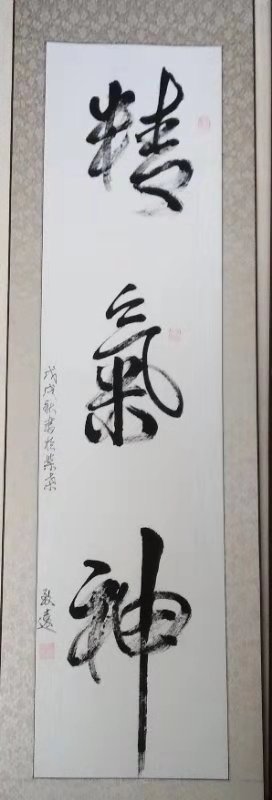 精氣神
戊戌秋書於紫京
致遠